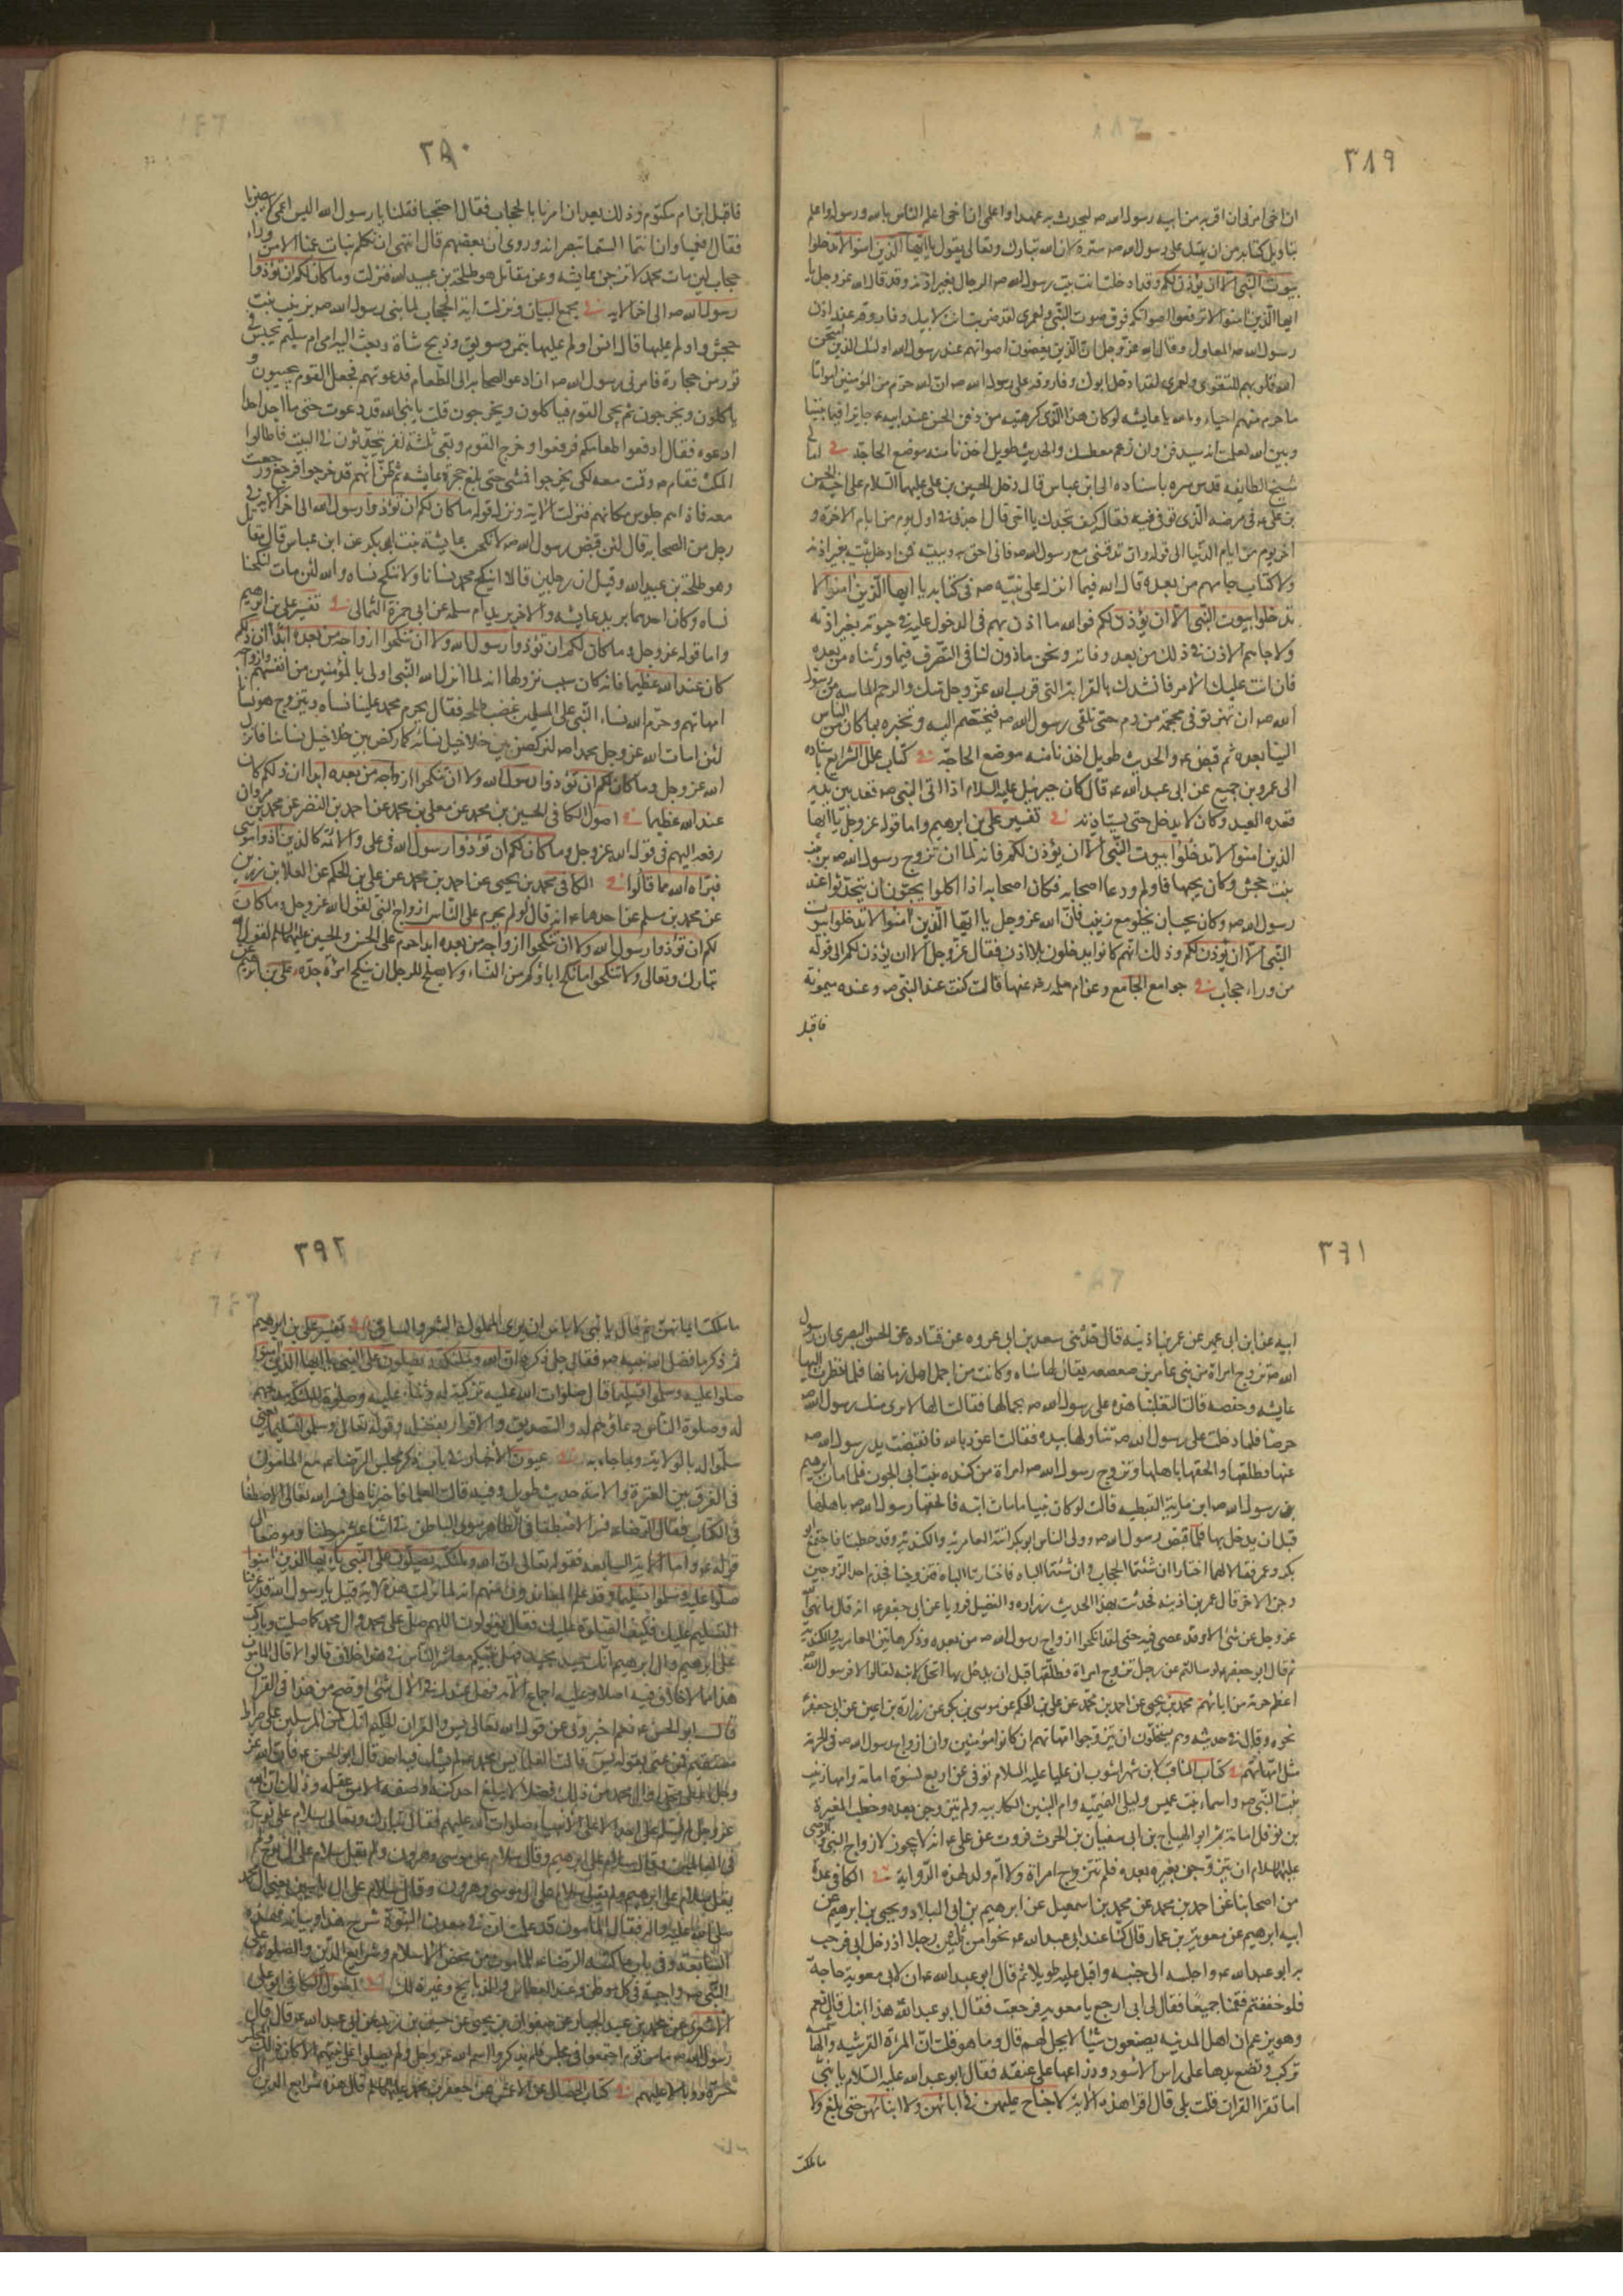 ٣٨٩
ان اخى امرنى ان اقربه من ابيه رسول الله صه ليحدث به عهدا واعلمى ان اخى اعلم الناس بالله ورسوله واعلم
بتاويل كتابه من ان يهتك على رسول الله صه ستره لان الله تبارك وتعالى يقول يا ايها الذين امنوا لا تدخلوا
بيوت النبى الا ان يؤذن لكم وقد ادخلت انت بيت رسول الله صه الرجال بغير اذنه وقد قال الله عز وجل يا
ايها الذين امنوا لا ترفعوا اصواتكم فوق صوت النبى ولعمرى لقد ضربت انت لابيك وفاروقه عند اذن
رسول الله صه المعاول وقال الله عز وجل ان الذين يغضون اصواتهم عند رسول الله اولئك الذين امتحن
الله قلوبهم للتقوى ولعمرى لقد ادخل ابوك وفاروقه على رسول الله صه ان الله حرم من المؤمنين امواتا
ما حرم منهم احياء وبالله يا عايشه لو كان هذا الذى كرهتيه من دفن الحسن عند ابيه ع جايزا فيما بيننا
وبين الله لعلمت انه سيدفن وان زعم معطسك والحديث طويل اخذنا منه موضع الحاجة فى اما
شيخ الطايفه قدس سره باسناده الى ابن عباس قال دخل الحسين بن على عليهما السلام على اخيه الحسن
بن على ع فى مرضه الذى توفى فيه فقال له كيف تجدك يا اخى قال اجدنى فى اول يوم من ايام الاخره و
اخر يوم من ايام الدنيا الى قوله وان تدفننى مع رسول الله صه فانى احق به وببيته ممن ادخل بيته بغير اذنه
ولا كتاب جاءهم من بعده قال الله فيما انزله على نبيه صه فى كتابه يا ايها الذين امنوا لا
تدخلوا بيوت النبى الا ان يؤذن لكم فوالله ما اذن لهم فى الدخول عليه فى حيوته بغير اذنه
ولا جاءهم الاذن فى ذلك من بعد وفاته ونحن ماذون لنا فى التصرف فيما ورثناه من بعده
فان ابت عليك الامراة فانشدك بالقرابة التى قرب الله عز وجل منك والرحم الماسه من رسول
الله صه ان تهريق فى محجمة من دم حتى نلقى رسول الله صه فنختصم اليه ونخبره بما كان من الناس
الينا بعده ثم قبض ع والحديث طويل اخذنا منه موضع الحاجة فى كتاب علل الشرايع باسناده
الى عمرو بن جميع عن ابى عبد الله ع قال كان جبرئيل عليه السلام اذا اتى النبى صه قعد بين يديه
قعدة العبد وكان لا يدخل حتى يستاذنه فى تفسير على بن ابرهيم واما قوله عز وجل يا ايها
الذين امنوا لا تدخلوا بيوت النبى الا ان يؤذن لكم فانه لما ان تزوج رسول الله صه بزينب
بنت جحش وكان يحبها فاولم ودعا اصحابه فكان اصحابه اذا اكلوا يحبون ان يتحدثوا عند
رسول الله صه وكان يحب ان يخلو مع زينب فانزل الله عز وجل يا ايها الذين امنوا لا تدخلوا بيوت
النبى الا ان يؤذن لكم وذلك انهم كانوا يدخلون بلا اذن فقال عز وجل الا ان يؤذن لكم الى قوله
من وراء حجاب فى جوامع الجامع وعن ام سلمه رضى عنها قالت كنت عند النبى صه وعنده ميمونة
فاقبل
٣٩٠
فاقبل ابن ام مكتوم وذلك بعد ان امرنا بالحجاب فقال احتجبا فقلنا يا رسول الله اليس اعمى لا يبصرنا
فقال افعمياوان انتما الستما تبصرانه وروى ان بعضهم قال اننهى ان نكلم بنات عمنا الا من وراء
حجاب لئن مات محمد لاتزوجن عايشه وعن مقاتل هو طلحة بن عبيد الله فنزلت وما كان لكم ان تؤذوا
رسول الله صه الى اخر الايه فى مجمع البيان ونزلت اية الحجاب لما بنى رسول الله صه بزينب بنت
جحش واولم عليها قال انس اولم عليها بتمر وسويق وذبح شاة وبعثت اليه امى ام سليم بحيس فى
تور من حجارة فامرنى رسول الله صه ان ادعو الصحابه الى الطعام فدعوتهم فجعل القوم يجيبون و
ياكلون ويخرجون ثم يجى القوم فياكلون ويخرجون قلت يا نبى الله قد دعوت حتى ما اجد احدا
ادعوه فقال ارفعوا طعامكم فرفعوا وخرج القوم وبقى ثلثة نفر يتحدثون فى البيت فاطالوا
المكث فقام صه وقمت معه لكى يخرجوا فمشى حتى بلغ حجرة عايشه ثم ظن انهم قد خرجوا فرجع ورجعت
معه فاذا هم جلوس مكانهم فنزلت الاية ونزل قوله ما كان لكم ان تؤذوا رسول الله الى اخر الاية فى
رجل من الصحابه قال لئن قبض رسول الله صه لانكحن عايشة بنت ابى بكر عن ابن عباس قال مقاتل
وهو طلحة بن عبيد الله وقيل ان رجلين قالا اينكح محمد نساءنا ولا ننكح نساءه والله لئن مات لنكحنا
نساءه وكان احدهما يريد عايشه والاخر يريد ام سلمه عن ابى حمزة الثمالى فى تفسير على بن ابرهيم
واما قوله عز وجل وما كان لكم ان تؤذوا رسول الله ولا ان تنكحوا ازواجه من بعده ابدا ان ذلكم
كان عند الله عظيما فانه كان سبب نزولها انه لما انزل الله النبى اولى بالمؤمنين من انفسهم وازواجه
امهاتهم وحرم الله نساء النبى على المسلمين غضب طلحه فقال يحرم محمد علينا نساءه ويتزوج هو نساءنا
لئن امات الله عز وجل محمدا صه لنركضن بين خلاخيل نسائه كما ركض بين خلاخيل نسائنا فانزل
الله عز وجل وما كان لكم ان تؤذوا رسول الله ولا ان تنكحوا ازواجه من بعده ابدا ان ذلكم كان
عند الله عظيما فى اصول الكافى الحسين بن محمد عن معلى بن محمد عن احمد بن النضر عن محمد بن مروان
رفعه اليهم فى قول الله عز وجل وما كان لكم ان تؤذوا رسول الله فى على والائمة كالذين اذوا موسى
فبراه الله مما قالوا فى الكافى محمد بن يحيى عن احمد بن محمد عن على بن الحكم عن العلا بن رزين
عن محمد بن مسلم عن احدهما ع انه قال لو لم يحرم على الناس ازواج النبى لقول الله عز وجل وما كان
لكم ان تؤذوا رسول الله ولا ان تنكحوا ازواجه من بعده ابدا حرم على الحسن والحسين عليهما السلام لقول الله
تبارك وتعالى ولا تنكحوا ما نكح اباؤكم من النساء ولا يصلح للرجل ان ينكح امراة جده على بن ابرهيم عن
٣٩١
ابيه عن ابن ابى عمير عن عمر بن اذينه قال حدثنى سعد بن ابى عروه عن قتاده عن الحسن البصرى ان رسول
الله صه تزوج امراة من بنى عامر بن صعصعه يقال لها سناه وكانت من اجمل اهل زمانها فلما نظرت اليها
عايشه وحفصه قالتا لتغلبنا هذه على رسول الله صه بجمالها فقالتا لها لا يرى منك رسول الله صه
حرصا فلما دخلت على رسول الله صه تناولها بيده فقالت اعوذ بالله فانقبضت يد رسول الله صه
عنها وطلقها والحقها باهلها وتزوج رسول الله صه امراة من كنده بنت ابى الجون فلما مات ابرهيم
بن رسول الله صه ابن مارية القبطيه قالت لو كان نبيا ما مات ابنه فالحقها رسول الله صه باهلها
قبل ان يدخل بها فلما قبض رسول الله صه وولى الناس ابو بكر اتته العامرية والكندية وقد خطبتا فاجتمع ابو
بكر وعمر فقالا لهما اختارا ان شئتما الحجاب وان شئتما الباه فاختارتا الباه فتزوجتا فجذم احد الزوجين
وجن الاخر قال عمر بن اذينه فحدثت بهذا الحديث زراره والفضيل فرويا عن ابى جعفر ع انه قال ما نهى الله
عز وجل عن شئ الا وقد عصى فيه حتى لقد انكحوا ازواج رسول الله صه من بعده وذكر هاتين العامرية والكندية
ثم قال ابو جعفر ع لو سالتم عن رجل تزوج امراة فطلقها قبل ان يدخل بها اتحل لابنه لقالوا لا فرسول الله صه
اعظم حرمة من ابائهم محمد بن يحيى عن احمد بن محمد عن على بن الحكم عن موسى بن بكر عن زرارة بن اعين عن ابى جعفر ع
نحوه وقال فى حديثه وهم يستحلون ان يتزوجوا امهاتهم ان كانوا مؤمنين وان ازواج رسول الله صه فى الحرمة
مثل امهاتهم فى كتاب المناقب لابن شهراشوب ان عليا عليه السلام توفى عن اربع نسوة امامة وامها زينب
بنت النبى صه واسماء بنت عميس وليلى التميميه وام البنين الكلابيه ولم يتزوجن بعده وخطب المغيرة
بن نوفل امامة ثم ابو الهياج بن ابى سفيان بن الحرث فروت عن على ع انه لا يجوز لازواج النبى والوصى
عليهما السلام ان يتزوجن بغيره بعده فلم تتزوج امراة ولا ام ولد لهذه الرواية فى الكافى عدة
من اصحابنا عن احمد بن محمد عن محمد بن اسمعيل عن ابرهيم بن ابى البلاد ويحيى بن ابرهيم عن
ابيه ابرهيم عن معوية بن عمار قال كنا عند ابى عبد الله ع نحوا من ثلثين رجلا اذ دخل ابى فرحب
به ابو عبد الله ع واجلسه الى جنبه واقبل عليه طويلا ثم قال ابو عبد الله ع ان لابى معوية حاجة
فلو خففتم فقمنا جميعا فقال لى ابى ارجع يا معويه فرجعت فقال ابو عبد الله هذا ابنك قال نعم
وهو يزعم ان اهل المدينه يصنعون شيئا لا يحل لهم قال وما هو قلت ان المراة القرشيه والهاشميه
تركب وتضع يدها على راس الاسود وذراعها على عنقه فقال ابو عبد الله عليه السلام يا بنى
اما تقرا القران قلت بلى قال اقرا هذه الاية لا جناح عليهن فى ابائهن ولا ابنائهن حتى بلغ ولا
ما ملكت
٣٩٢
ما ملكت ايمانهن ثم قال يا بنى لا باس ان يرى المملوك الشعر والساق فى تفسير على بن ابرهيم
ثم ذكر ما فضل الله نبيه صه فقال جل ذكره ان الله وملئكته يصلون على النبى يا ايها الذين امنوا
صلوا عليه وسلموا تسليما قال صلوات الله عليه تزكية له وثناء عليه وصلوة الملئكة مدحهم
له وصلوة الناس دعاؤهم له والتصديق والاقرار بفضله وقوله تعالى وسلموا تسليما يعنى
سلموا له بالولاية وبما جاء به فى عيون الاخبار فى باب ذكر مجلس الرضا ع مع المامون
فى الفرق بين العترة والامة حديث طويل وفيه قالت العلما فاخبرنا هل فسر الله تعالى الاصطفا
فى الكتاب فقال الرضاء فسر الاصطفا فى الظاهر سوى الباطن فى اثنا عشر موطنا وموضعا الى
قوله ع واما الاية السابعه فقوله تعالى ان الله وملئكته يصلون على النبى يا ايها الذين امنوا
صلوا عليه وسلموا تسليما وقد علم المعاندون منهم انه لما نزلت هذه الاية قيل يا رسول الله قد عرفنا
التسليم عليك فكيف الصلوة عليك فقال تقولون اللهم صل على محمد وال محمد كما صليت وباركت
على ابرهيم وال ابرهيم انك حميد مجيد فهل بينكم معاشر الناس فى هذا خلاف قالوا لا قال المامون
هذا ما لا خلاف فيه اصلا وعليه اجماع الامة فهل عندك فى الال شئ اوضح من هذا فى القران
قال ابو الحسن ع نعم اخبرونى عن قول الله تعالى يس والقران الحكيم انك لمن المرسلين على صراط
مستقيم فمن عنى بقوله يس قالت العلماء يس محمد صه لم يشك فيه احد قال ابو الحسن ع فان الله عز
وجل اعطى محمدا وال محمد من ذلك فضلا لا يبلغ احد كنه وصفه الا من عقله وذلك ان الله
عز وجل لم يسلم على احد الا على الانبياء صلوات الله عليهم فقال تبارك وتعالى سلام على نوح
فى العالمين وقال سلام على ابرهيم وقال سلام على موسى وهرون ولم يقل سلام على ال نوح ولم
يقل سلام على ال ابرهيم ولم يقل سلام على ال موسى وهرون وقال سلام على ال ياسين يعنى ال محمد
صلى الله عليه واله فقال المامون قد علمت ان فى معدن النبوة شرح هذا وبيانه فهذه
السابعة وفى باب ما كتبه الرضاء للمامون من محض الاسلام وشرايع الدين والصلوة على
النبى صه واجبة فى كل موطن وعند العطاس والذبايح وغير ذلك فى اصول الكافى ابو على
الاشعرى عن محمد بن عبد الجبار عن صفوان بن يحيى عن حسين بن زيد عن ابى عبد الله ع قال قال
رسول الله صه ما من قوم اجتمعوا فى مجلس فلم يذكروا اسم الله عز وجل ولم يصلوا على نبيهم الا كان ذلك المجلس
حسرة ووبالا عليهم فى كتاب الخصال عن الاعمش عن جعفر بن محمد عليهما السلام قال هذه شرايع الدين الى